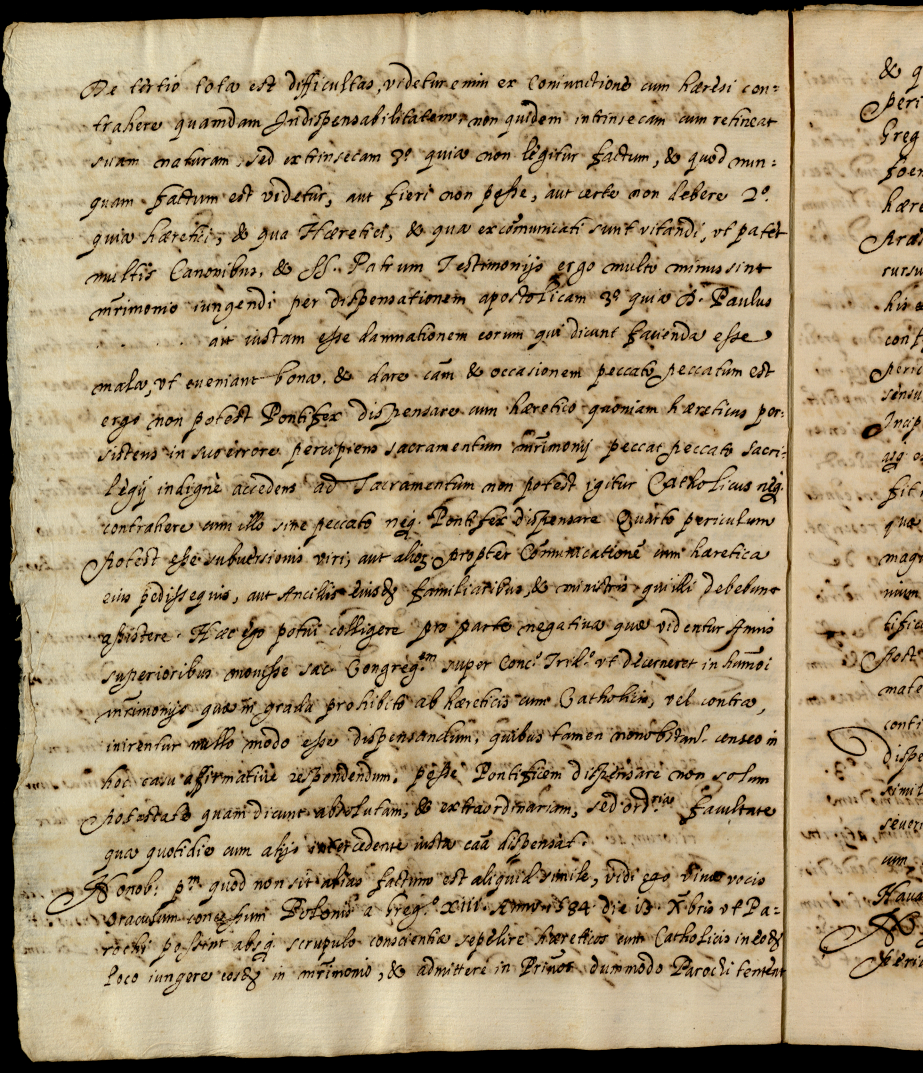 De tertio tota est difficultas, videtur enim ex Coniunctione cum hæresi con=
trahere quamdam Indispensabilitatem, non quidem intrinsecam cum retineat
suam naturam, sed extrinsecam 3º. quia non legitur factum, & quod nun=
quam factum est videtur, aut fieri non posse, aut certe non debere 2º.
quia hæretici, & qua Hæretici, & qua excõmunicati sunt vitandi, vt patet
multis Canonibus, & SS. Patrum Testimonijs ergo multo minus sint
mr̃imonio iungendi per dispensationem apostolicam 3º quia D. Paulus
ait iustam esse damnationem eorum qui dicunt facienda esse
mala, vt eveniant bona. & dare cãm & occasionem peccato peccatum est
ergo non potest Pontifex dispensare cum hæretico quoniam hæreticus per=
sistens in suo errore percipiens sacramentum mr̃imonij peccat peccato sacri=
legij indignè accedens ad Sacramentum non potest igitur Catholicus neq.
contrahere cum illo sine peccato neq. Pontifex dispensare Quarto periculum
Potest esse subversionis viri, aut alioꝝ propter Cõmunicationẽ cum hæretica
eius pedissequis, aut Ancillis eiusdẽ familiaribus, & ministris qui illi debebunt
assistere. Hæc ego potui colligere pro parte negativa quæ videntur Annis
superioribus movisse sac. Congreg.em super Conc.º Trid.º vt decerneret in hum̃oi
mr̃imonijs quæ in gradu prohibito ab hæreticis cum Catholicis, vel contra,
inirentur nullo modo esse dispensandum. quibus tamen non obstan.t censeo in
hoc casu affirmative respondendum, posse Pontificem dispensare non solum
Potestate quam dicunt absolutam, & extraordinariam, sed ord.ria facultate
qua quotidie cum alijs intercedente iusta caã dispensat.
Non ob. pm quod non sit alias factum est aliquid simile, vidi ego vivæ vocis
Oraculum concessum Polonis a Greg.º xiii. Anno 1584 die 13 Xbris vt Pa=
rochi possint absq. scrupulo conscientiæ sepelire hæreticos cum Catholicis in eodẽ
loco iungere eosdẽ in mr̃imonio, & admittere in dummodo Parochi
& q
peri
Greg
foen
hære
cursu
conf
peric
sensu
Incip
fit
quæ
magn
tific
Post
mat
conti
Dispe
simil
sever
cum
Hava